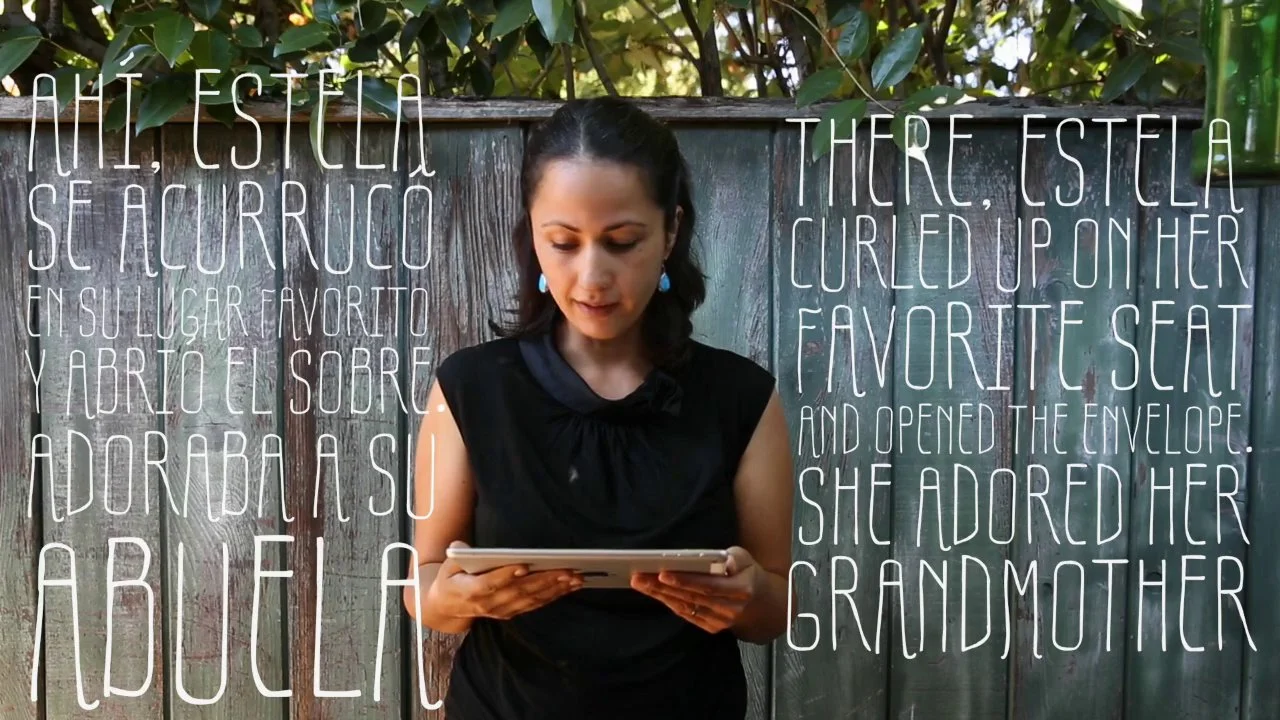 AHÍ, ESTELA
SE ACURRUCÓ
EN SU LUGAR FAVORITO
Y ABRIÓ EL SOBRE.
ADORABA A SU
ABUELA
THERE, ESTELA
CURLED UP ON HER
FAVORITE SEAT
AND OPENED THE ENVELOPE.
SHE ADORED HER
GRANDMOTHER